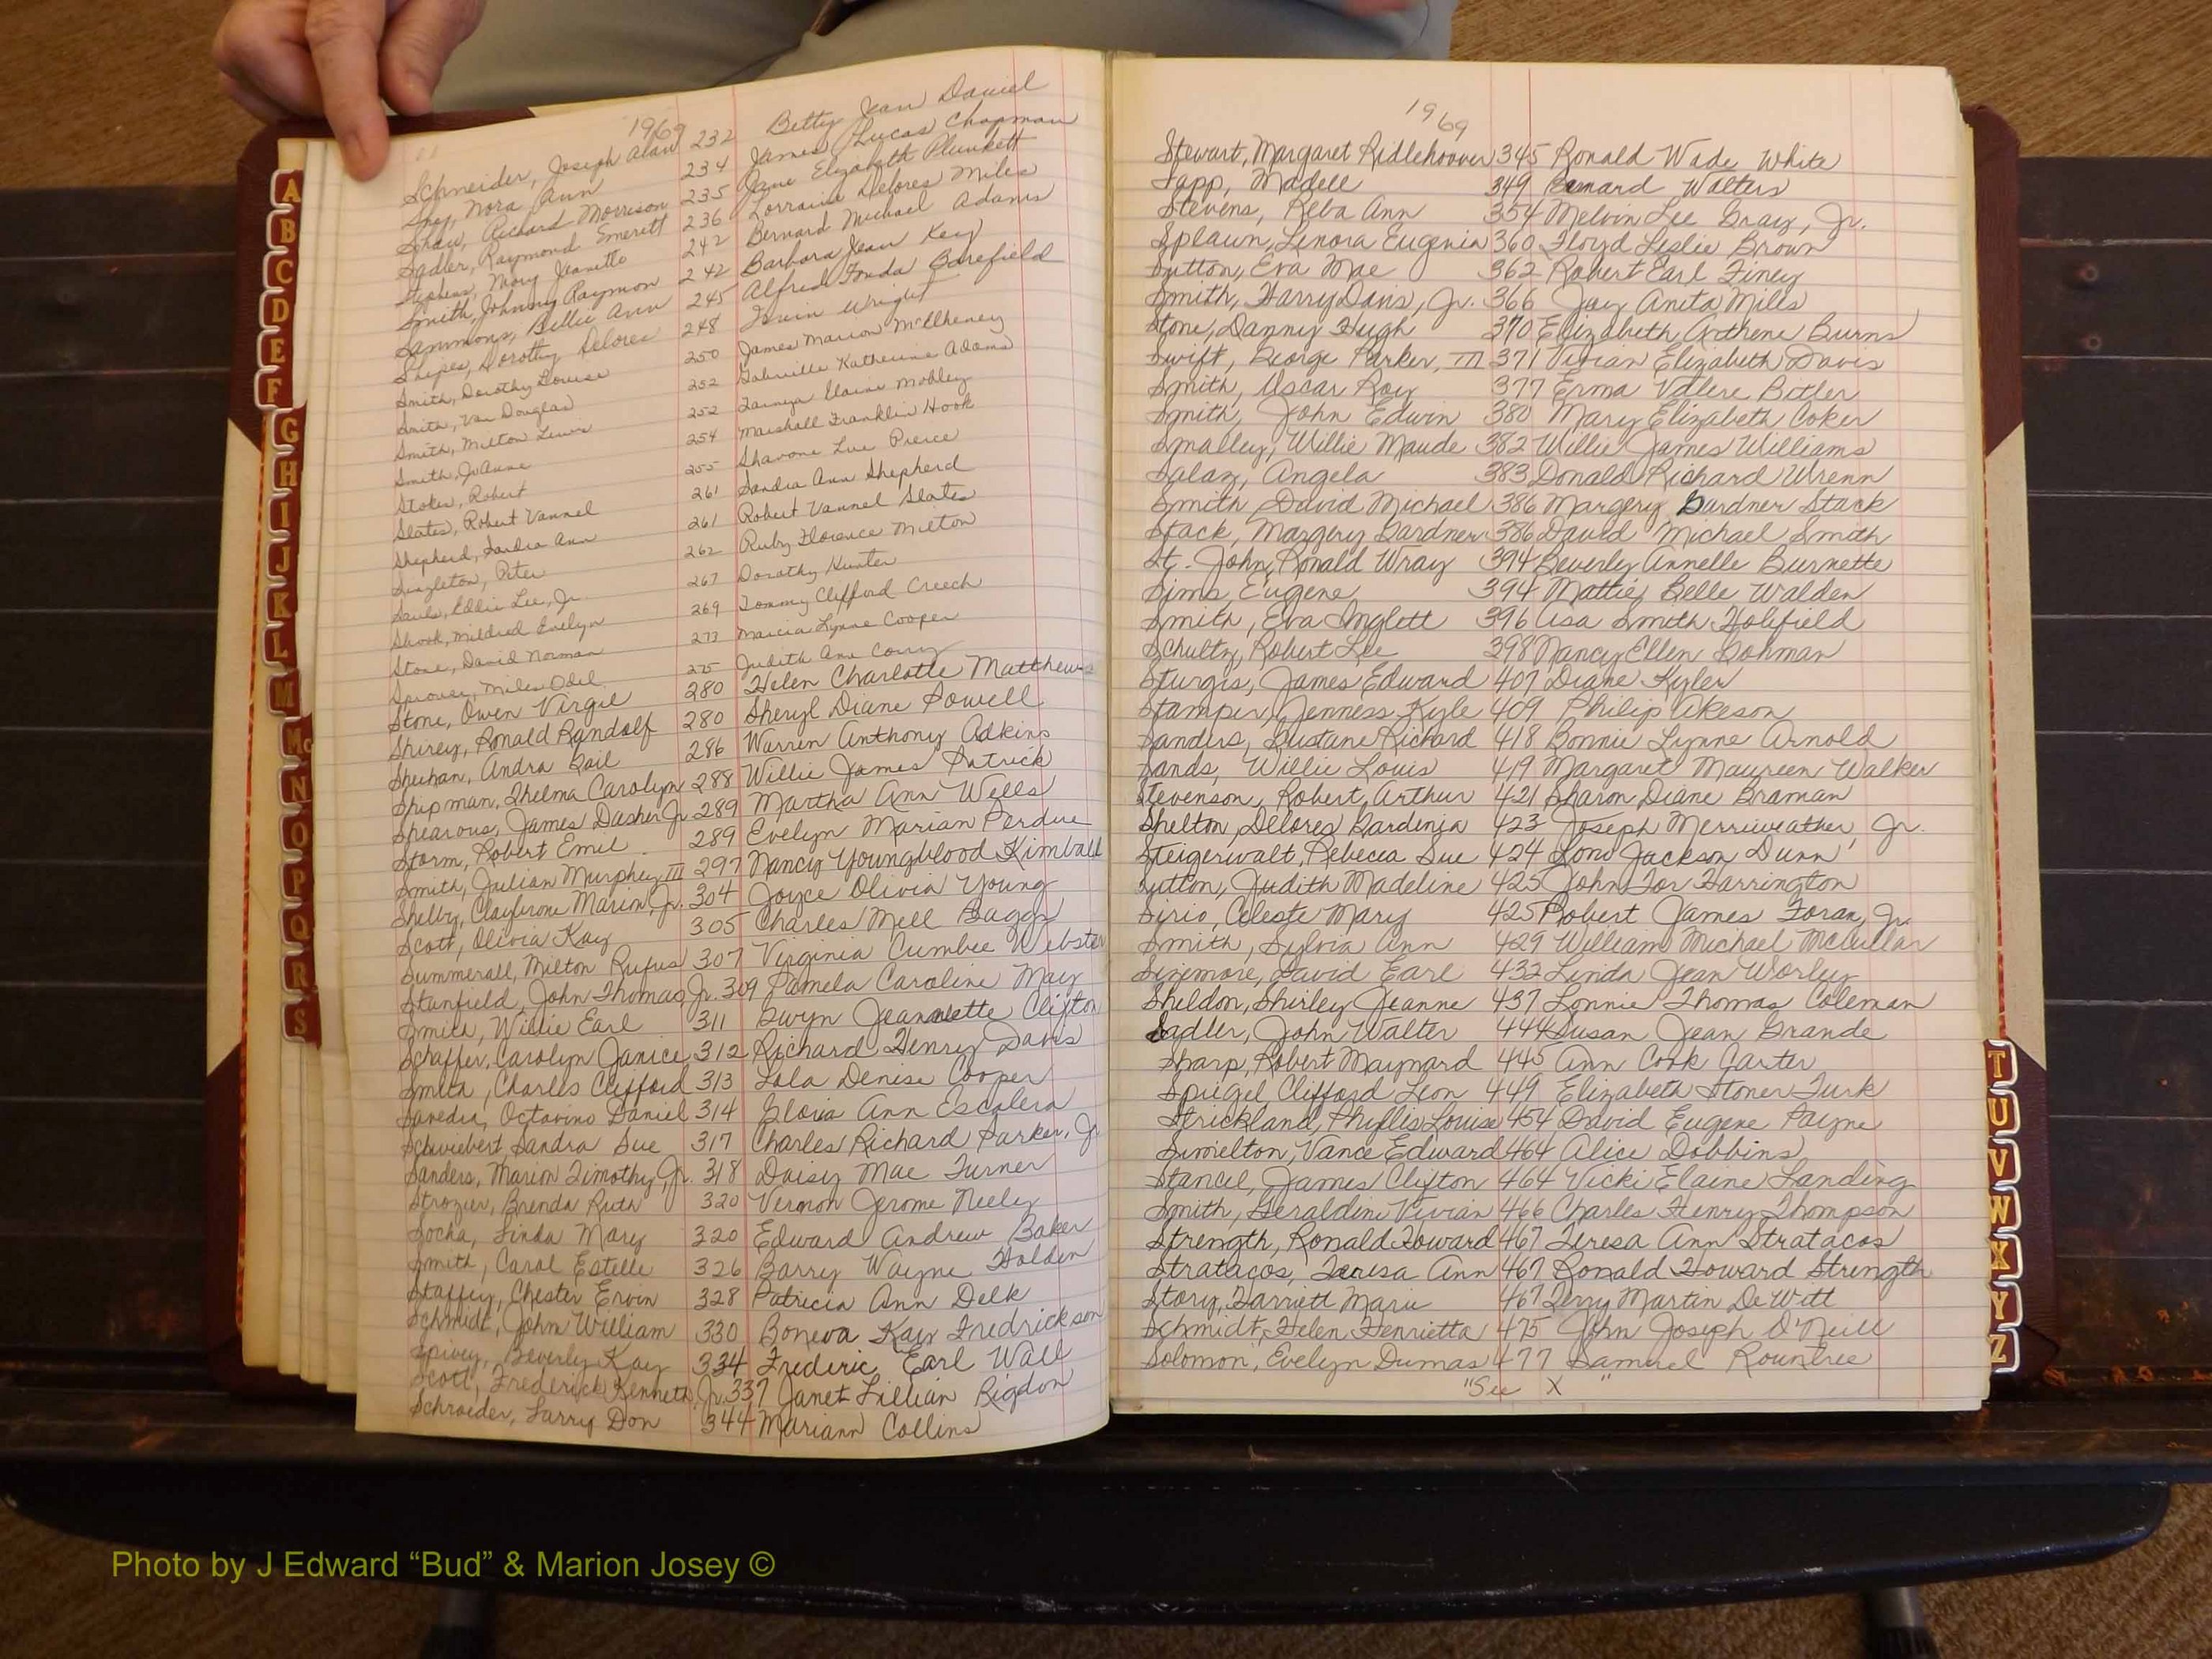 1969
Schneider, Joseph Alan 232 Betty Jean Daniel
Nora Ann 234 James Lucas Chapman
Shaw, Richard Morrison 235 Jane Elizabeth Plunkett
Sadler, Raymond Emerett 236 Lorraine Delores Miles
Stephens, Mary Jeanette 242 Bernard Michael Adams
Smith, Johnny Raymon 242 Barbara Jean Key
Sammons, Billie Ann 245 Alfred Fonda Barefield
Shipes, Dorothy Delores 248 Irvin Wright
Smith, Dorothy Louise 250 James Marion McElheney
Smith, Van Douglas 252 Gabrielle Katherine Adams
Smith, Milton Lewis 252 Elaine Mobley
Smith, JoAnne 254 Marshall Franklin Hook
Stokes, Robert 255 Shavone Lue Pierce
Slates, Robert Vannel 261 Sandra Ann Shepherd
Shepherd, Sandra Ann 261 Robert Vannel Slates
Singleton, Peter 262 Ruby Florence Milton
Sauls, Eddie Lee, Jr. 267 Dorothy Hunter
Shook, Mildred Evelyn 269 Tommy Clifford Creech
Stone, David Norman 273 Marcia Lynne Cooper
Miles Odel 275 Judith Ann
Stone, Owen Virgil 280 Helen Charlotte Matthews
Shirey, Ronald Randolf 280 Sheryl Diane Powell
Sheehan, Andra Gail 286 Warren Anthony Adkins
Shipman, Thelma Carolyn 288 Willie James Patrick
Spearous, James Dasher Jr 289 Martha Ann Wells
Storm, Robert Emil 289 Evelyn Marian Perdue
Smith, Julian Murphey III 297 Nancy Youngblood Kimball
Shelby, Clayburne Marion, Jr. 304 Joyce Olivia Young
Scott, Olivia Kay 305 Charles Mell Baggs
Summerall, Milton Rufus 307 Virginia Cumbee Webster
Stanfield, John Thomas, Jr. 309 Pamela Caroline May
Smith, Willie Earl 311 Gwyn Jeannette Clifton
Schaffer, Carolyn Janice 312 Richard Henry Davis
Smith, Charles Clifford 313 Lola Denise Cooper
Savedra, Octavino Daniel 314 Gloria Ann Escalera
Schwiebert, Sandra Sue 317 Charles Richard Parker, Jr
Sanders, Marion Timothy, Jr. 318 Daisy Mae Turner
Strozier, Brenda Ruth 320 Vernon Jerome Neely
Socha, Linda Mary 320 Edward Andrew Baker
Smith, Carol Estelle 326 Barry Wayne Holden
Staffey, Chester Ervin 328 Patricia Ann Delk
Schmidt, John William 330 Boneva Kay Fredrickson
Spivey, Beverly Kay 334 Frederic Earl Wall
Scott, Frederick Kenneth, Jr. 337 Janet Lillian Rigdon
Schroeder, Larry Don 344 Mariann Collins
1969
Stewart, Margaret Ridlehoover 345 Ronald Wade White
Sapp, Madell 349 Bernard Walters
Stevens, Reba Ann 354 Melvin Lee Gray, Jr.
Splawn, Lenora Eugenia 360 Floyd Leslie Brown
Sutton, Eva Mae 362 Robert Earl Finey
Smith, Harry Davis, Jr. 366 Joy Anita Mills
Stone, Danny Hugh 370 Elizabeth Arthene Burns
Swift, George Parker, III 371 Vivian Elizabeth Davis
Smith, Oscar Roy 377 Erma Vallere Bitler
Smith, John Edwin 380 Mary Elizabeth Coker
Smalley, Willie Maude 382 Willie James Williams
Salaz, Angela 383 Donald Richard Wrenn
Smith, David Michael 386 Margery Gardner Stack
Stack, Margery Gardner 386 David Michael Smith
St. John, Ronald Wray 394 Beverly Annelle Burnette
Sims, Eugene 394 Mattie Belle Walden
Smith, Eva Inglett 396 Asa Smith Holifield
Schultz, Robert Lee 398 Nancy Ellen Dohman
Sturgis, James Edward 407 Diane Kyler
Stamper, Jenness Kyle 409 Philip Akeson
Sanders, Dustane Richard 418 Bonnie Lynne Arnold
Sands, Willie Louis 419 Margaret Maureen Walker
Stevenson, Robert Arthur 421 Sharon Diane Braman
Shelton, Delores Gardenia 423 Joseph Merriweather, Jr.
Steigerwalt, Rebecca Sue 424 Lono Jackson Dunn
Sutton, Judith Madeline 425 John For Harrington
Sirio, Celeste Mary 425 Robert James Foran, Jr.
Smith, Sylvia Ann 429 William Michael McCullar
Sizemore, David Earl 432 Linda Jean Worley
Sheldon, Shirley Jeanne 437 Lonnie Thomas Coleman
Sadler, John Walter 444 Susan Jean Grande
Sharp, Robert Maynard 445 Ann Cook Carter
Spiegel, Clifford Leon 449 Elizabeth Stoner Turk
Strickland, Phyllis Louise 454 David Eugene Payne
Simelton, Vance Edward 464 Alice Dobbins
Stancil, James Clifton 464 Vicki Elaine Landing
Smith, Geraldine Vivian 466 Charles Henry Thompson
Strength, Ronald Howard 467 Teresa Ann Stratacos
Stratacos, Teresa Ann 467 Ronald Howard Strength
Story, Harriett Marie 467 Terry Martin DeWitt
Schmidt, Helen Henrietta 475 John Joseph O'Neill
Solomon, Evelyn Dumas 477 Samuel Rountree
"See X"
A
B
C
D
E
F
G
H
I
J
K
L
M
Mc
N
O
P
Q
R
S
T
U
V
W
X
Y
Z
Photo by J Edward “Bud” & Marion Josey ©